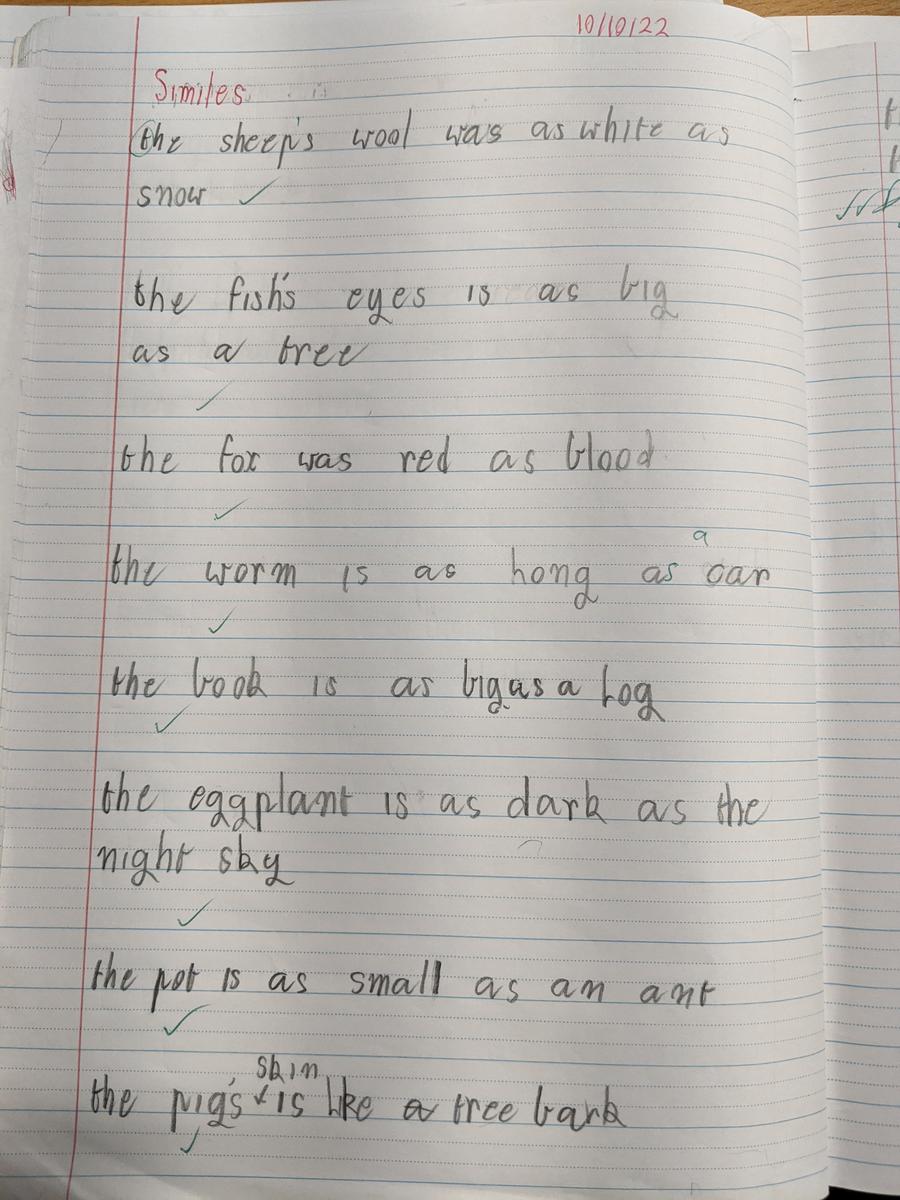 10/10/22
Similes
the sheep's wool was as white as
snow
the fish's eyes is as big
as a tree
the fox was red as blood
a
the worm is as hong as car
the book is as big as a hog
the eggplant is as dark as the
night sky
the pot is as small as an ant
skin
the pig's is like a tree bark